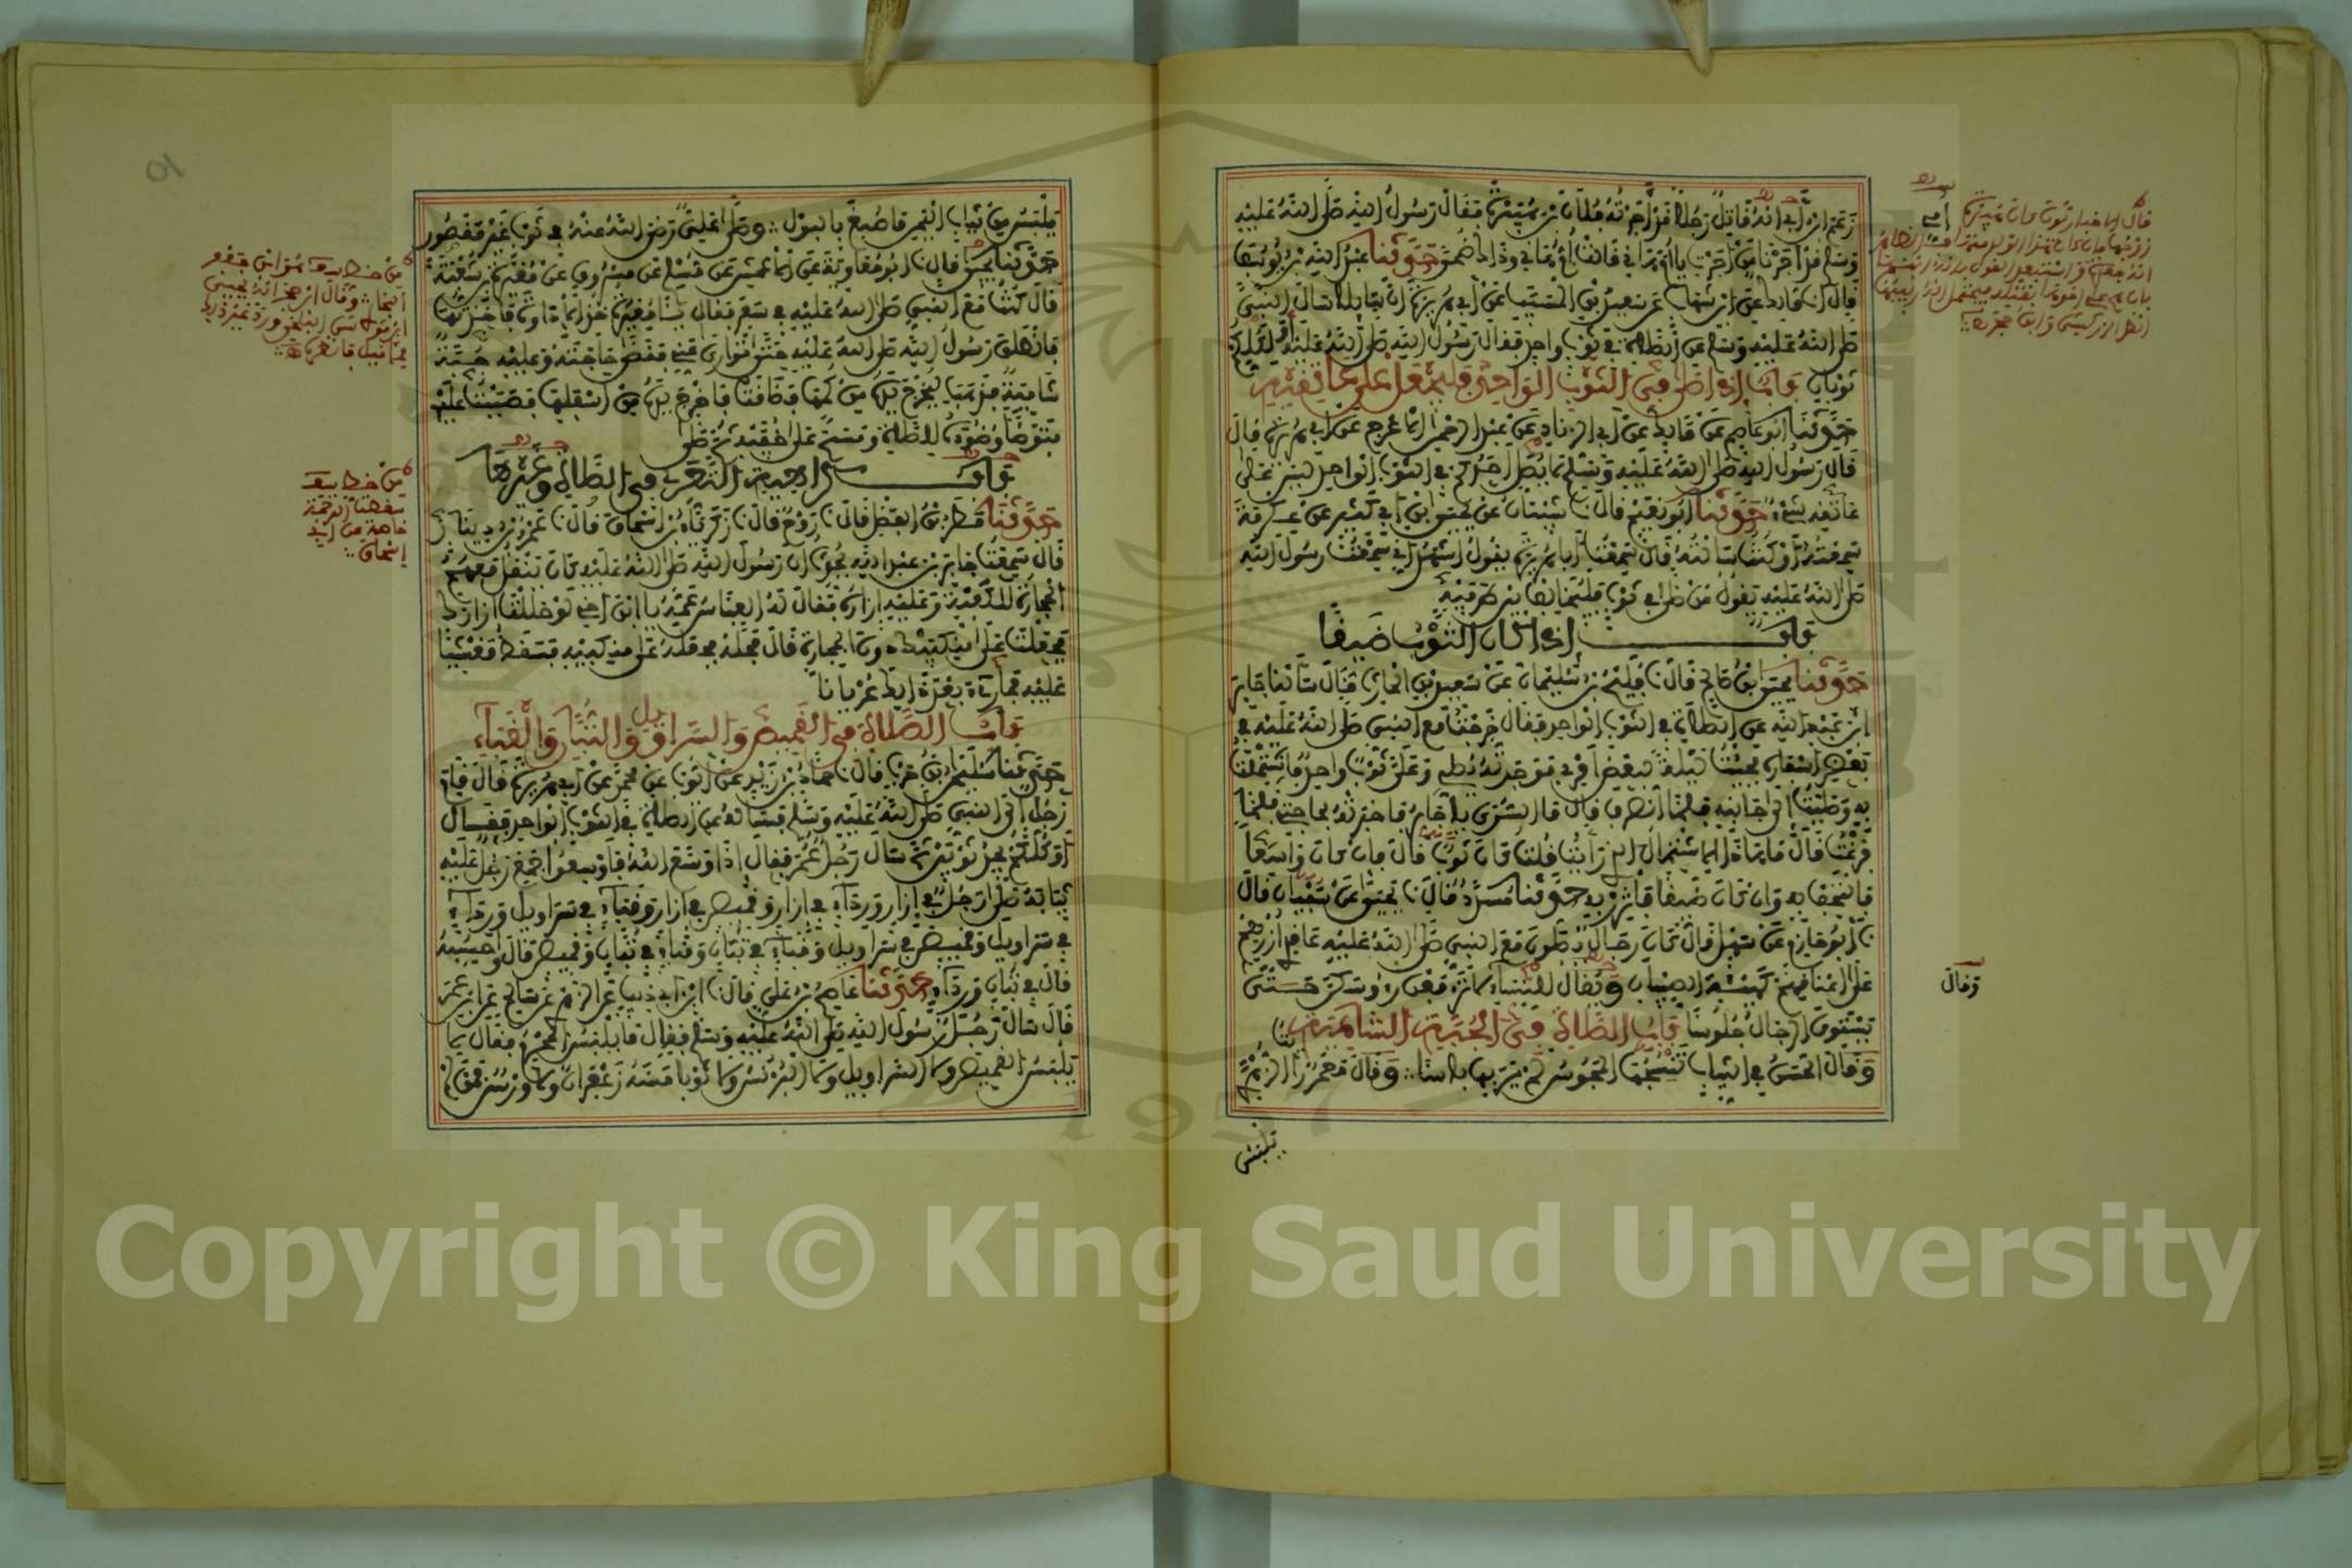 زعم ابن أبي أنه قاتل رجلا قد أجرته فلان بن هبيرة فقال رسول الله صلى الله عليه
وسلم قد أجرنا من أجرت يا أم هانئ قالت أم هانئ وذاك ضحى حدثنا عبد الله بن يوسف
قال انا مالك عن ابن شهاب عن سعيد بن المسيب عن أبي هريرة أن سائلا سأل النبي
صلى الله عليه وسلم عن الصلاة في ثوب واحد فقال رسول الله صلى الله عليه أو لكلكم
ثوبان باب إذا صلى في الثوب الواحد فليجعل على عاتقيه
حدثنا أبو عاصم عن مالك عن أبي الزناد عن عبد الرحمن الأعرج عن أبي هريرة قال
قال رسول الله صلى الله عليه وسلم لا يصلي أحدكم في الثوب الواحد ليس على
عاتقه شيء حدثنا أبو نعيم قال نا شيبان عن يحيى ابن أبي كثير عن عكرمة
سمعته أو كنت سألته قال سمعت أبا هريرة يقول أشهد أني سمعت رسول الله
صلى الله عليه يقول من صلى في ثوب فليخالف بين طرفيه
باب إذا كان الثوب ضيقا
حدثنا يحيى ابن صالح قال نا فليح بن سليمان عن سعيد بن الحارث قال سألنا جابر
ابن عبد الله عن الصلاة في الثوب الواحد فقال خرجت مع النبي صلى الله عليه في
بعض أسفاره فجئت ليلة لبعض أمري فوجدته يصلي وعلي ثوب واحد فاشتملت
به وصليت إلى جانبه فلما انصرف قال ما السرى يا جابر فأخبرته بحاجتي فلما
فرغت قال ما هذا الاشتمال الذي رأيت قلت كان ثوب قال فإن كان واسعا
فالتحف به وإن كان ضيقا فاتزر به حدثنا مسدد قال نا يحيى عن سفيان قال
نا أبو حازم عن سهل قال كان رجال يصلون مع النبي صلى الله عليه عاقدي أزرهم
على أعناقهم كهيئة الصبيان ويقال للنساء لا ترفعن رءوسكن حتى
يستوي الرجال جلوسا باب الصلاة في الجبة الشامية
وقال الحسن في الثياب تنسجها المجوس لم ير بها بأسا وقال معمر رأيت الزهري
يلبس
وقال
يلبس من ثياب اليمن ما صبغ بالبول وصلى علي رضي الله عنه في ثوب غير مقصور
حدثنا يحيى قال نا أبو معاوية عن الأعمش عن مسلم عن مسروق عن مغيرة بن شعبة
قال كنت مع النبي صلى الله عليه في سفر فقال يا مغيرة خذ الإداوة فأخذتها
فانطلق رسول الله صلى الله عليه حتى توارى عني فقضى حاجته وعليه جبة
شامية فذهب ليخرج يده من كمها فضاقت فأخرج يده من أسفلها فصببت عليه
فتوضأ وضوءه للصلاة ومسح على خفيه ثم صلى
باب كراهية التعري في الصلاة وغيرها
حدثنا مطر بن الفضل قال نا روح قال نا زكرياء بن إسحاق قال نا عمرو بن دينار
قال سمعت جابر بن عبد الله يحدث أن رسول الله صلى الله عليه كان ينقل معهم
الحجارة للكعبة وعليه إزاره فقال له العباس عمه يا ابن أخي لو حللت إزارك
فجعلت على منكبيك دون الحجارة قال فحله فجعله على منكبيه فسقط مغشيا
عليه فما رئي بعد ذلك عريانا
باب الصلاة في القميص والسراويل والتبان والقباء
حدثنا سليمان بن حرب قال نا حماد بن زيد عن أيوب عن محمد عن أبي هريرة قال قام
رجل إلى النبي صلى الله عليه وسلم فسأله عن الصلاة في الثوب الواحد فقال
أو كلكم يجد ثوبين ثم سأل رجل عمر فقال إذا وسع الله فأوسعوا جمع رجل عليه
ثيابه صلى رجل في إزار ورداء في إزار وقميص في إزار وقباء في سراويل ورداء
في سراويل وقميص في سراويل وقباء في تبان وقباء في تبان وقميص قال وأحسبه
قال في تبان ورداء حدثنا عاصم بن علي قال نا ابن أبي ذئب عن الزهري عن سالم عن ابن عمر
قال سأل رجل رسول الله صلى الله عليه وسلم فقال ما يلبس المحرم فقال لا
يلبس القميص ولا السراويل ولا البرنس ولا ثوبا مسه زعفران ولا ورس فمن لم
من خط
سقطت الترجمة
إسحاق
Copyright © King Saud University
1957